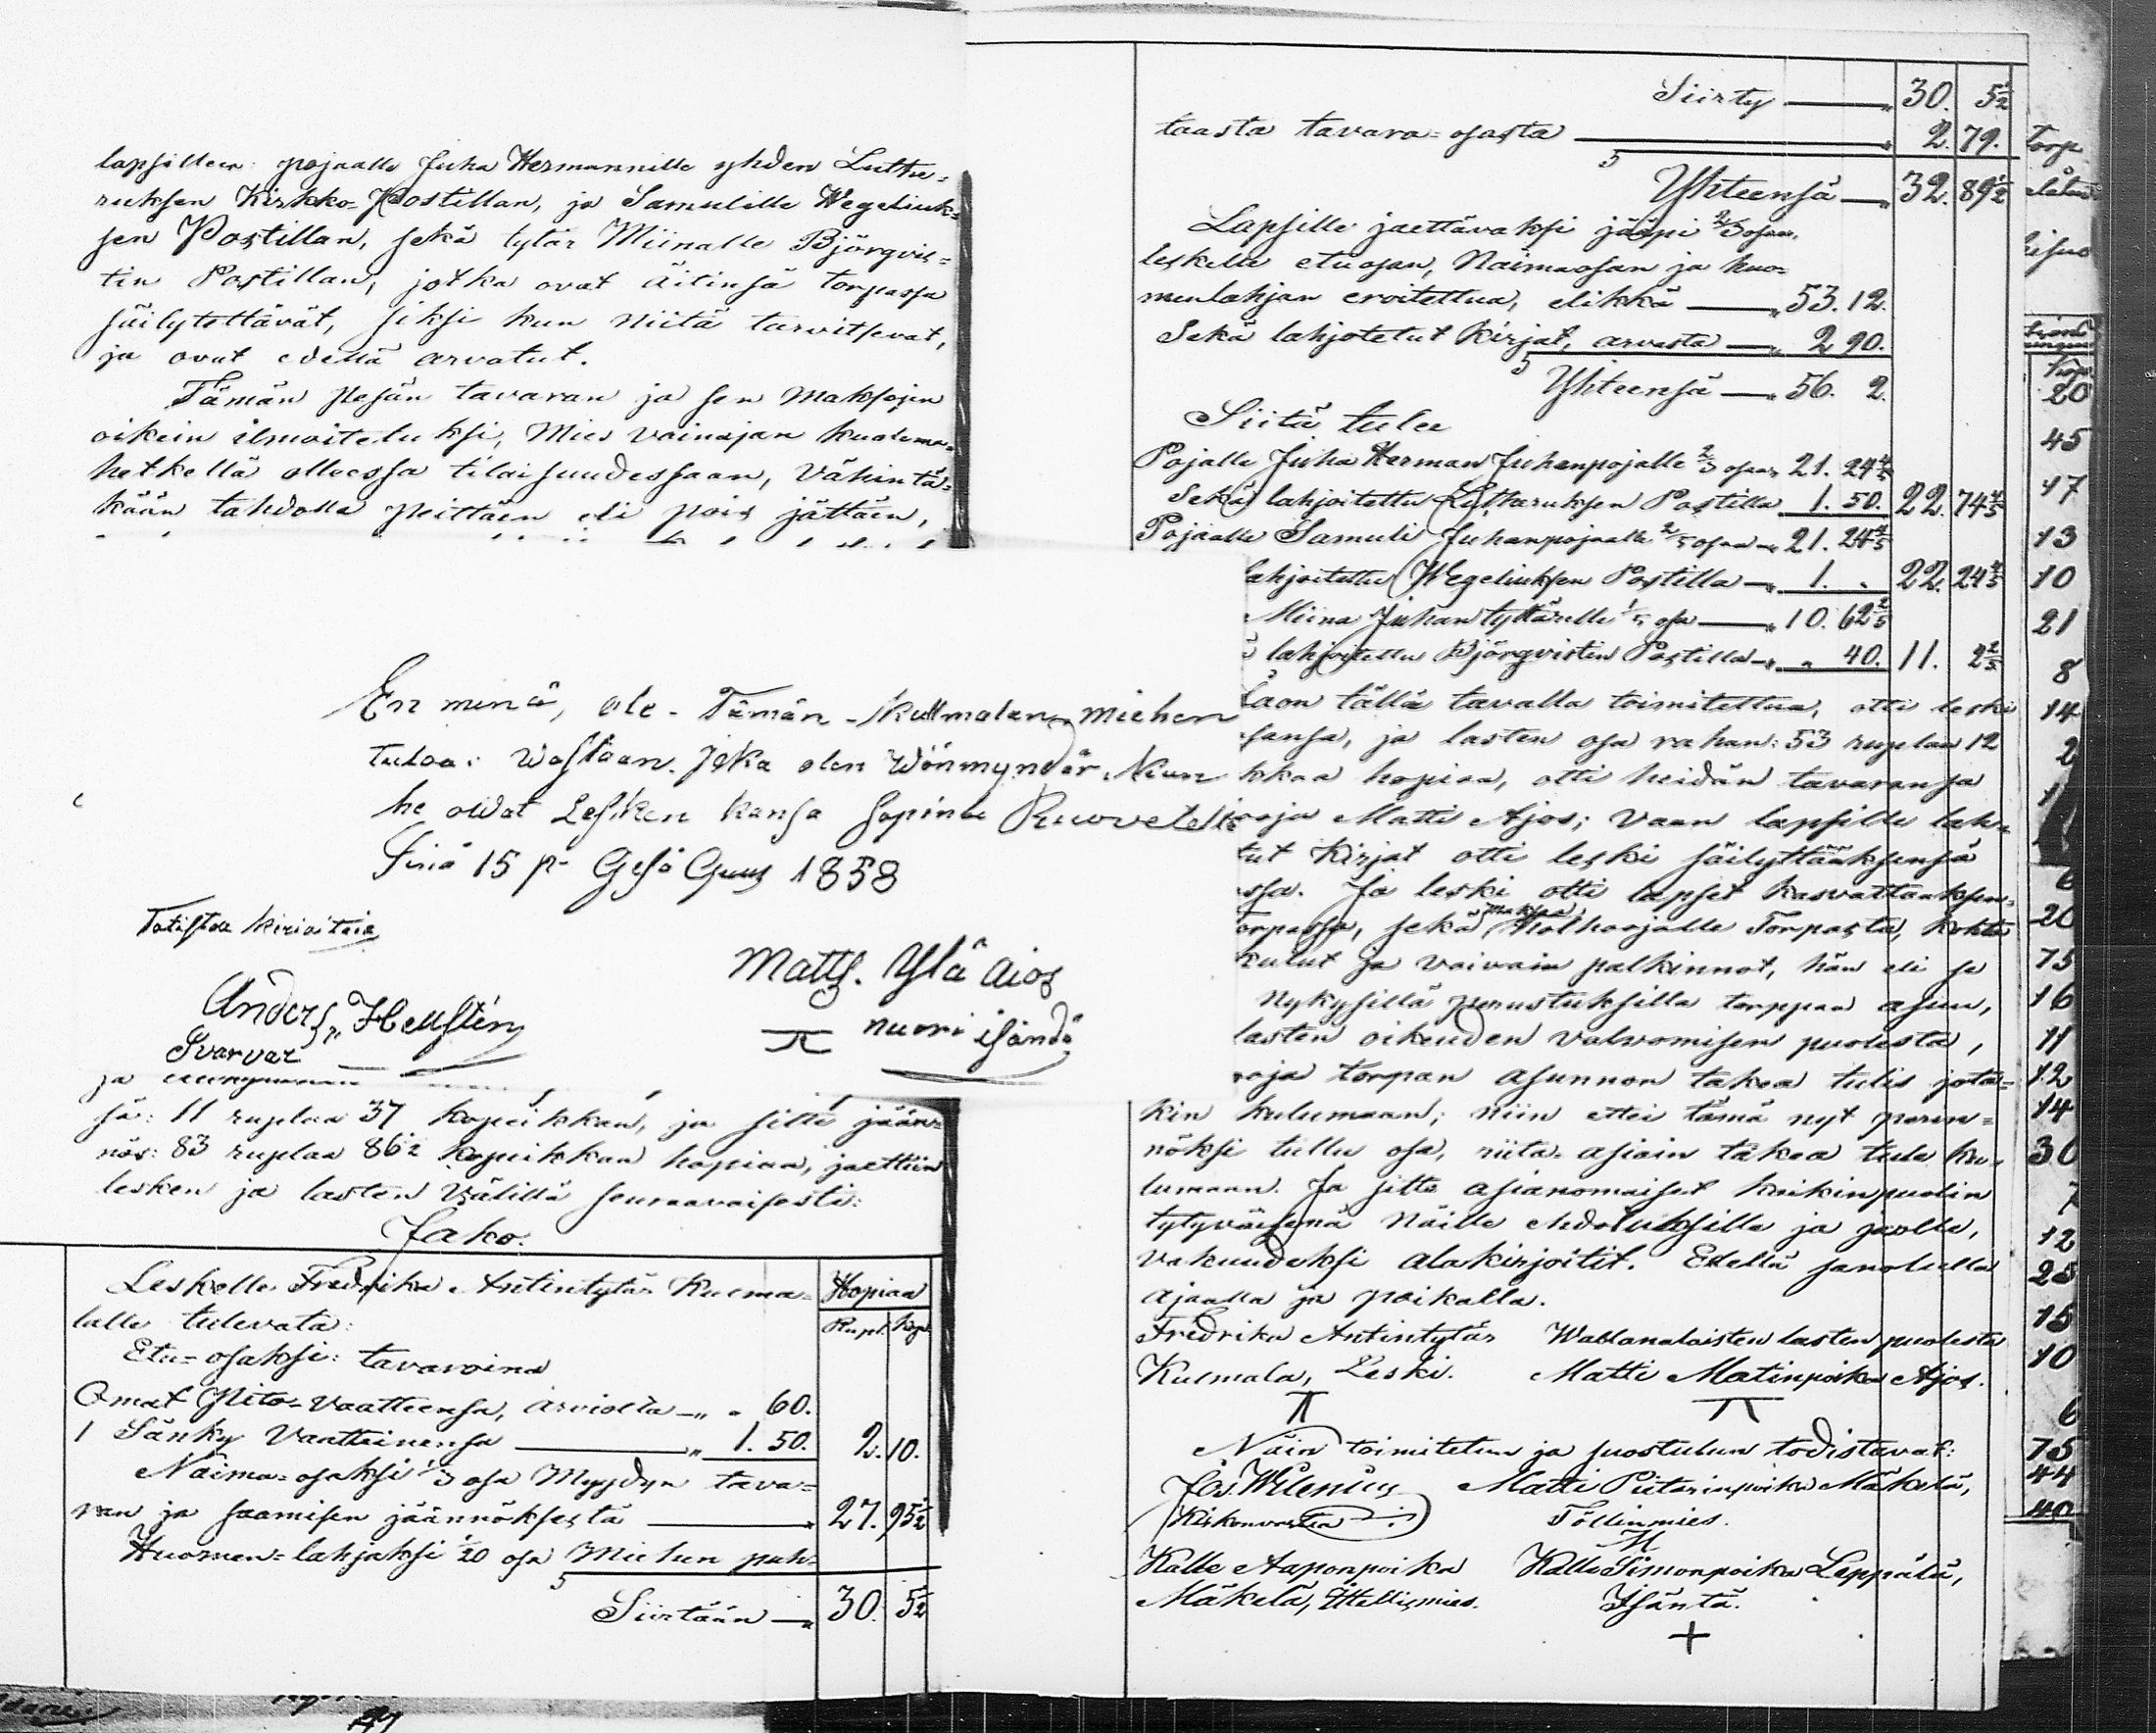 lapsillen: pojaalle Juha Hermannille yhden Luthe=
ruksen Kirkko-Postillan, ja Samulille Wegeliuk=
sen Postillan, sekä tytär Miinalle Björgvis=
tin Postillan, jotka ovat äitinsä torpassa
säilytettävät, siksi kun niitä tarvitsevat,
ja ovat edellä arvatut.
Tämän pesän tavaran ja sen maksojen
oikein ilmoitetuksi, Mies vainajan kuolema=
hetkellä olleessa tilaisuudessaan, vähintä=
kään tahdolla peittäen eli pois jättäen,
En minä, ole Tämän Kullmalan miehen
tuloa: Wastaan. joka olen Wönmyndär. Niin
he owat Lesken kansa Sopinu Ruovedellä
Sinä 15 p Gesä Guus 1858
Totistaa kirioitaia
Anders Hellstén
Svarvar
Matts. Ylä Aios
nuori isändä
ja
sä: 11 ruplaa 37 kopeikkaa, ja sitte jään=
nös: 83 ruplaa 86½ kopeikkaa hopiaa, jaettiin
lesken ja lasten välillä seuraavaisesti:
Jako.
Leskelle Fredrika Antintytär Kuema=
lalle tulevata:
Hopiaa
Rupl. Kop.
Etu=osaksi: tavaroina
Omat Pito=vaatteensa, arviolta — " 60.
1 Sänky Vaatteinensa — " 1. 50. 2. 10.
Naima=osaksi ⅓ osa Myydyn tava=
ran ja saamisen jäännöksestä — 27. 95½
Huomen=lahjaksi 1/20 osa Miehen puh=
Siirtään — 30. 5½
Siirty — 30. 5½
taasta tavara=osasta — 2. 79.
Yhteensä — 32. 89½
Lapsille jaettävaksi jääpi ⅔ osaa,
leskelle etuosan, Naimaosan ja huo=
menlahjan eroitettua, elikkä — 53. 12.
Sekä lahjotetut Kirjat, arvosta — 2 90.
Yhteensä — 56. 2.
Siitä tulee
Pojalle Juha Herman Juhanpojalle ⅖ osaa 21. 24⅘
Sekä lahjoitettu Lutharuksen Postilla 1. 50. 22. 74⅘
Pojaalle Samuli Juhanpojaalle ⅖ osaa 21. 24⅘
lahjoitettu Wegeliuksen Postilla — 1. " 22. 24⅘
Miina Juhantyttärelle ⅕ osa — 10. 62⅖
lahjoitettu Björgvisten Postilla — " 40. 11. 2⅖
tällä tavalla toimitettua, otti leski
sansa, ja lasten osa rahan: 53 ruplaa 12
kkaa hopiaa, otti heidän tavaransa
oja Matti Ajos; vaan lapsille lah=
tut Kirjat otti leski säilyttääksensä
ssa. Ja leski otti lapset kasvattaaksen=
orpassa, sekä maksaa Holhoojalle Torpasta, kohta
kulut ja vaivain palkinnot, hän eli se
nykysillä perustuksilla torppaa asuu,
lasten oikeuden valvomisen puolesta,
oja torpan asunnon takaa tulis jotä=
kin kulumaan; niin ettei tämä nyt perin=
nöksi tullu osa, riita=asiain takaa tule ku=
lumaan. Ja sitte asianomaiset kaikinpuolin
tytyväisenä näille ehdoituksille ja jaolle,
vakuudeksi alakirjoitit. Edellä sanotulla
ajaalla ja paikalla.
Fredrika Antintytär Wallanalaisten lasten puolesta
Kuemala, Leski. Matti Matinpoika Ajos.
Näin toimitetun ja suostutun todistavat:
Jos. Wilenius Matti Pietarinpoika Mäkelä,
Kirkonvartia Töllinmies.
Kalle Aaponpoika Kalle Simonpoika Leppälä,
Mäkelä, Ittellismies. Isäntä.
+
torp
20
45
17
13
10
21
8
14
2
6
20
75
16
11
12
14
30
7
12
25
15
10
6
75
44
40